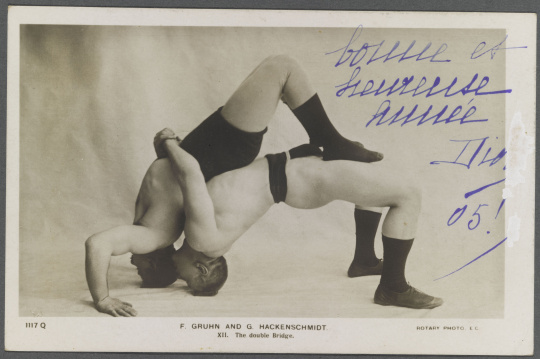 bonne et
heureuse
année
05!
1117 Q
F. GRUHN AND G. HACKENSCHMIDT
XII. The double Bridge.
ROTARY PHOTO. E.C.